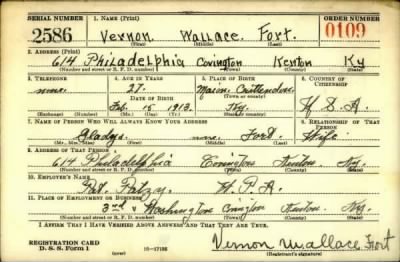 SERIAL NUMBER 1. NAME (Print) ORDER NUMBER
2586 Vernon Wallace Fort. 0109
(First) (Middle) (Last)
2. ADDRESS (Print)
614 Philadelphia Covington Kenton Ky
(Number and street or R. F. D. number) (Town) (County) (State)
3. TELEPHONE 4. AGE IN YEARS 5. PLACE OF BIRTH 6. COUNTRY OF CITIZENSHIP
none. 27. Marion Crittenden
DATE OF BIRTH (Town or county)
Feb. 15 1913. Ky. U. S. A.
(Mo.) (Day) (Yr.) (State or country)
7. NAME OF PERSON WHO WILL ALWAYS KNOW YOUR ADDRESS 8. RELATIONSHIP OF THAT PERSON
Gladys none Fort Wife
(Mr., Mrs., Miss) (First) (Middle) (Last)
9. ADDRESS OF THAT PERSON
614 Philadelphia Covington Kenton Ky.
(Number and street or R. F. D. number) (Town) (County) (State)
10. EMPLOYER'S NAME
Pat. W. P. A.
11. PLACE OF EMPLOYMENT OR BUSINESS
3rd & Washington Covington Kenton Ky.
(Number and street or R. F. D. number) (Town) (County) (State)
I AFFIRM THAT I HAVE VERIFIED ABOVE ANSWERS AND THAT THEY ARE TRUE.
REGISTRATION CARD
D. S. S. Form 1 (over) Vernon Wallace Fort
(Registrant's signature)